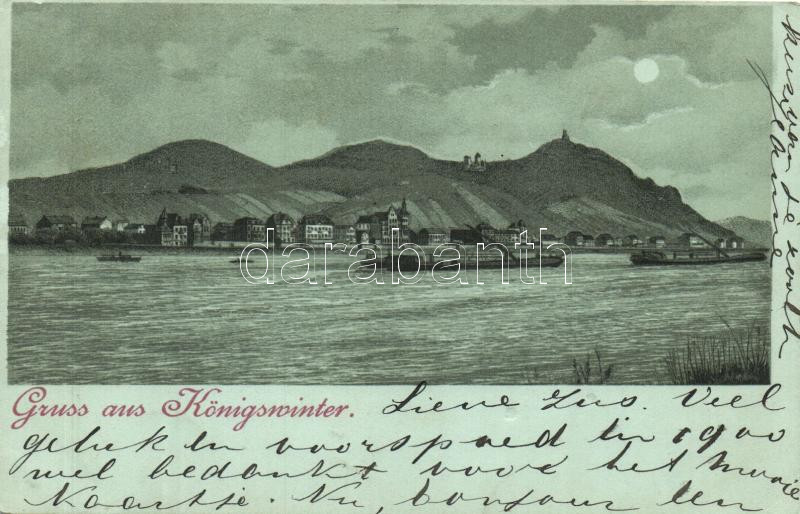 Gruss aus Königswinter.
Lieve Zus. Veel
geluk en voorspoed in 1900
wel bedankt voor het mooie
Kaartje. Nu, bonjour den
van de
darabanth